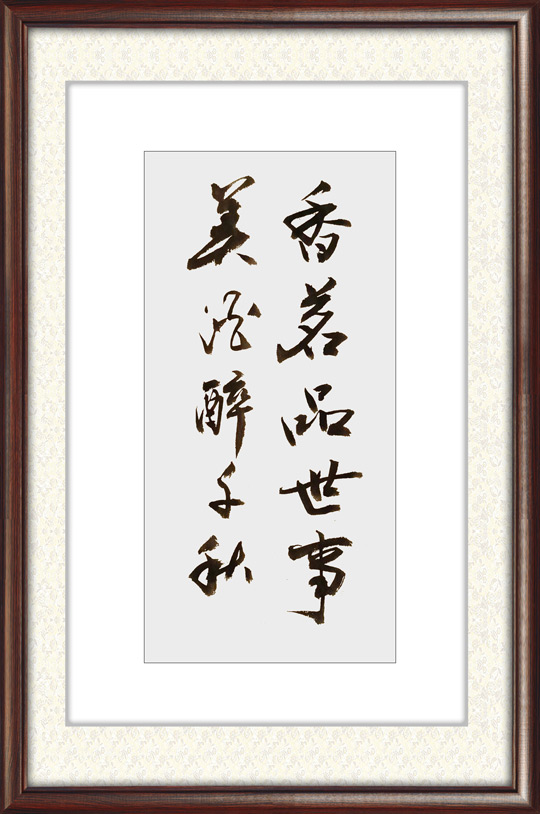 香茗品世事
美酒醉千秋